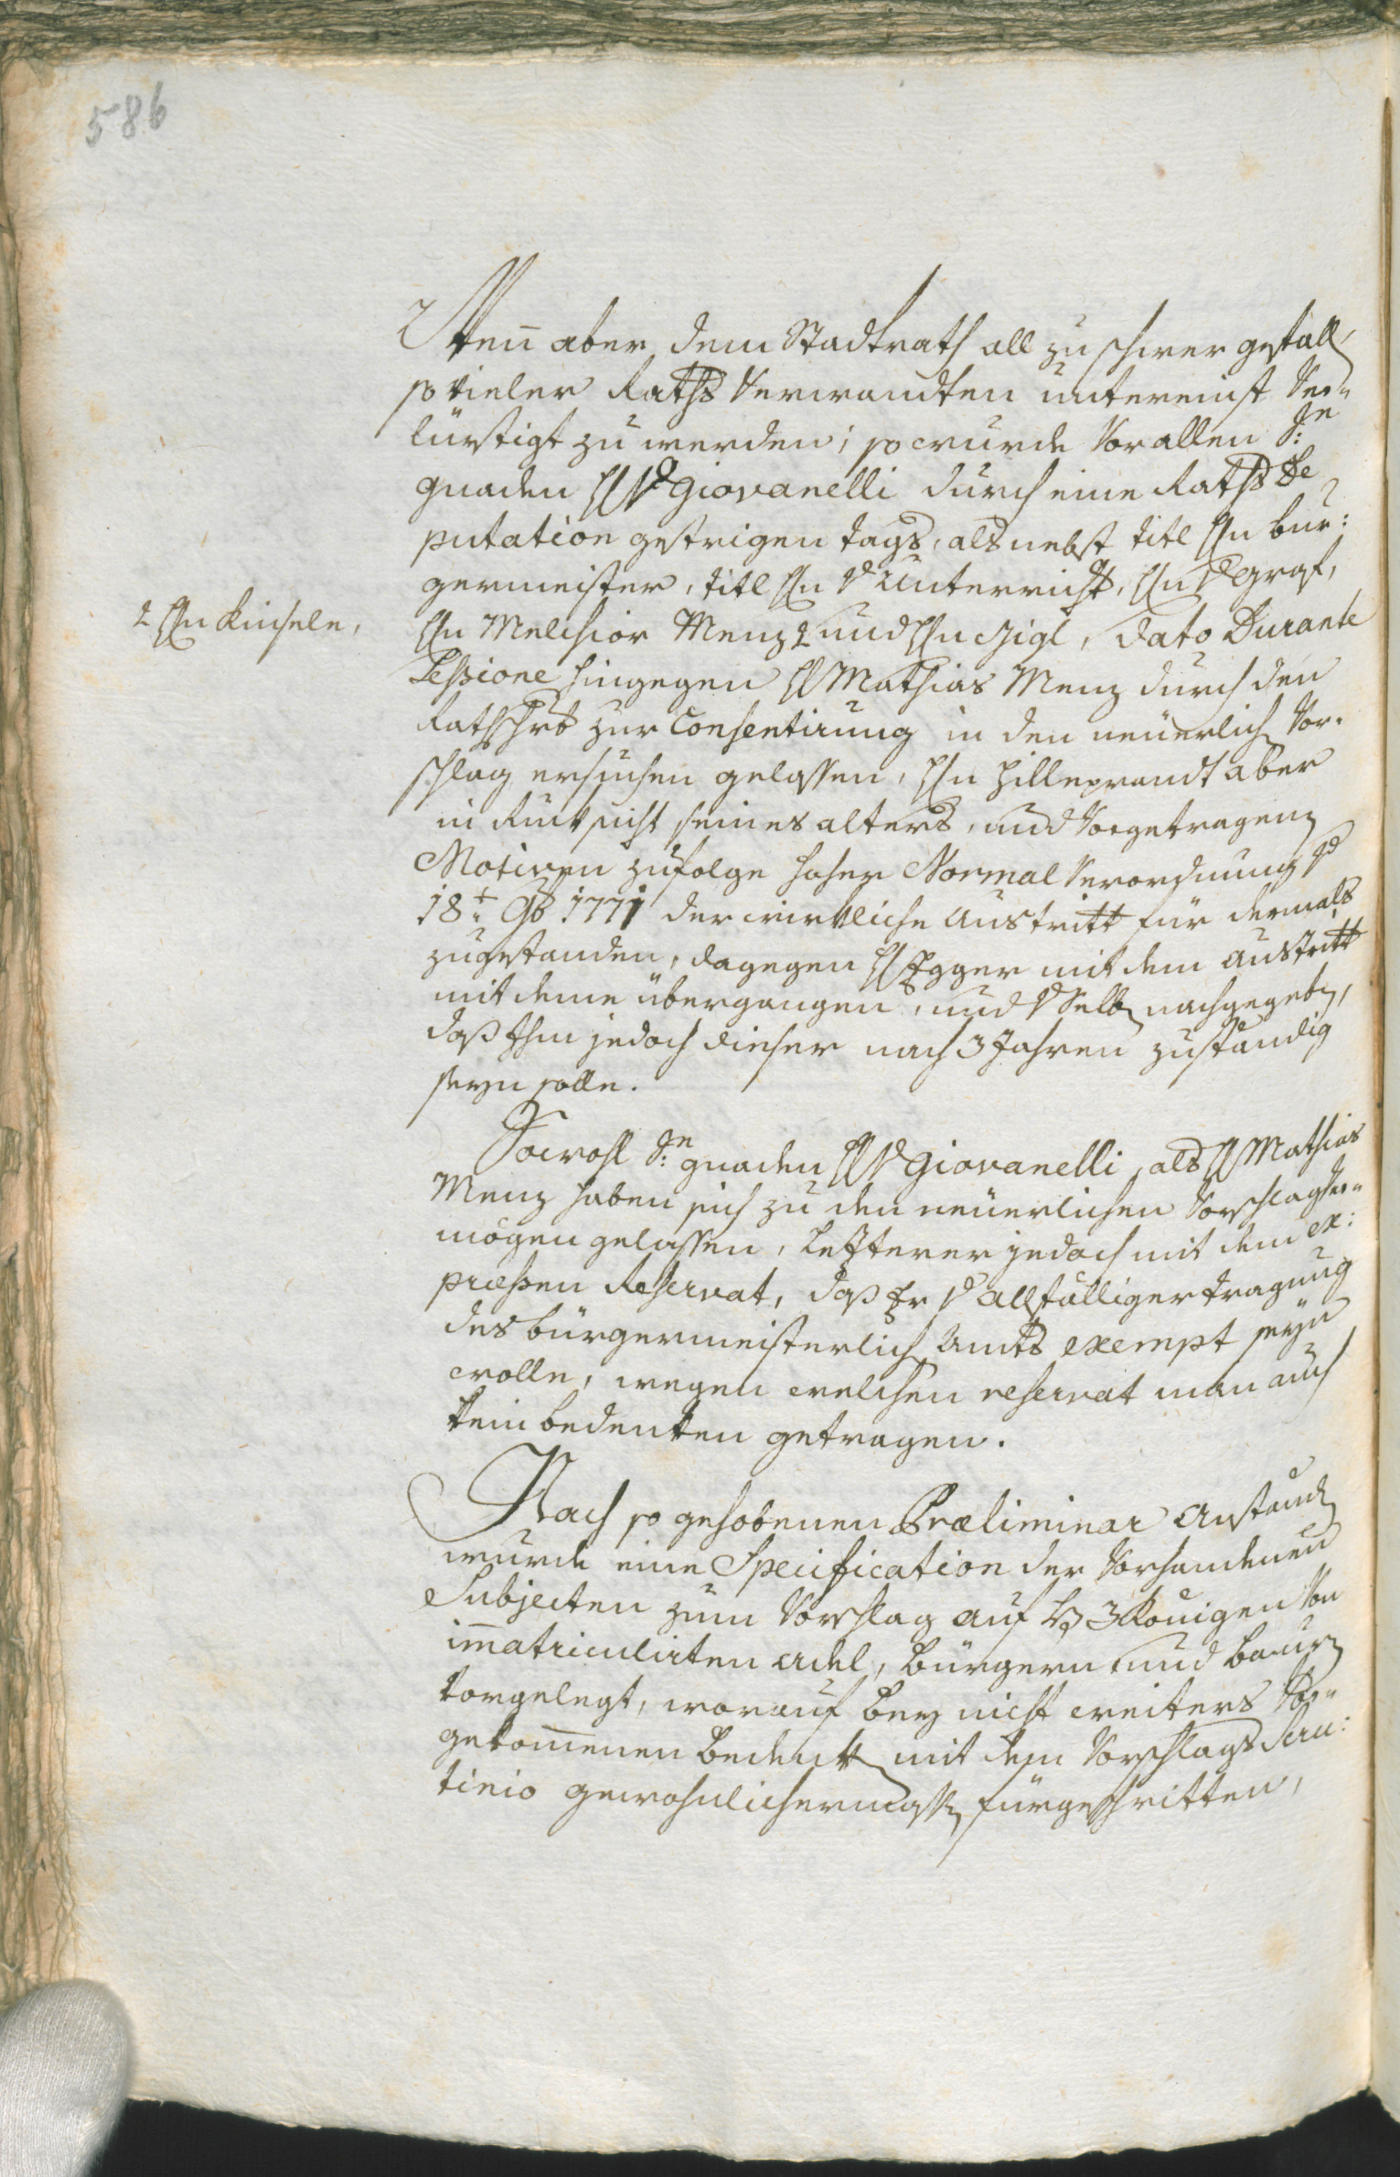 586
Wenn aber dem Stadtrath all zu schwer gefall
so vieler Raths Verwandten untereinst Ver-
lurstigt zu werden; so wurde Vor allen Se
gnaden H v Giovanelli durch eine Raths De
putation gestrigen tags, als nebst titl Hn bur:
germeister, titl Hn v Unterricht, Hn v Graf,
Hn Melchior Menz und Hn Zigl, dato Durante
Hn Kinsele,
Sessione hingegen H Mathias Menz durch den
Rathschrb zur Consentirung in den neuerlich Vor-
schlag ersuchen gelassen, Hn Hilleprandt aber
in Ruksicht seines alters, und Vorgetragenen
Motiven zufolge hoher Normal Verordnung v
18t 9b 1771 der wirkliche Austritt für dermals
zugestanden, dagegen H Egger mit dem Austritt
mit deme übergangen, und Selben nachgegeben,
daß Ihm jedoch dieser nach 3 Jahren zuständig
seyn solle.
Sowohl Sn gnaden H v Giovanelli, als H Mathias
Menz haben sich zu den neuerlichen Vorschlag Ver-
mögen gelassen, Letzterer jedoch mit dem ex:
pressen Reservat, daß Er v allfälliger tragung
des bürgermeisterlich Amts exempt seyn
wolle, wegen welchen reservat man auch
kein bedenken getragen.
Nach so gehobenen Præliminar Anständ
wurde eine Specification der Vorhandenen
Subjecten zum Vorschlag auf H 3 Königen Von
immatriculirten Adel, Bürgern und Bauern
vorgelegt, worauf bey nicht weiters Vor-
gekommenen Bedenken mit dem Vorschlags Scru:
tinio gewohnlichermassen fürgeschritten,